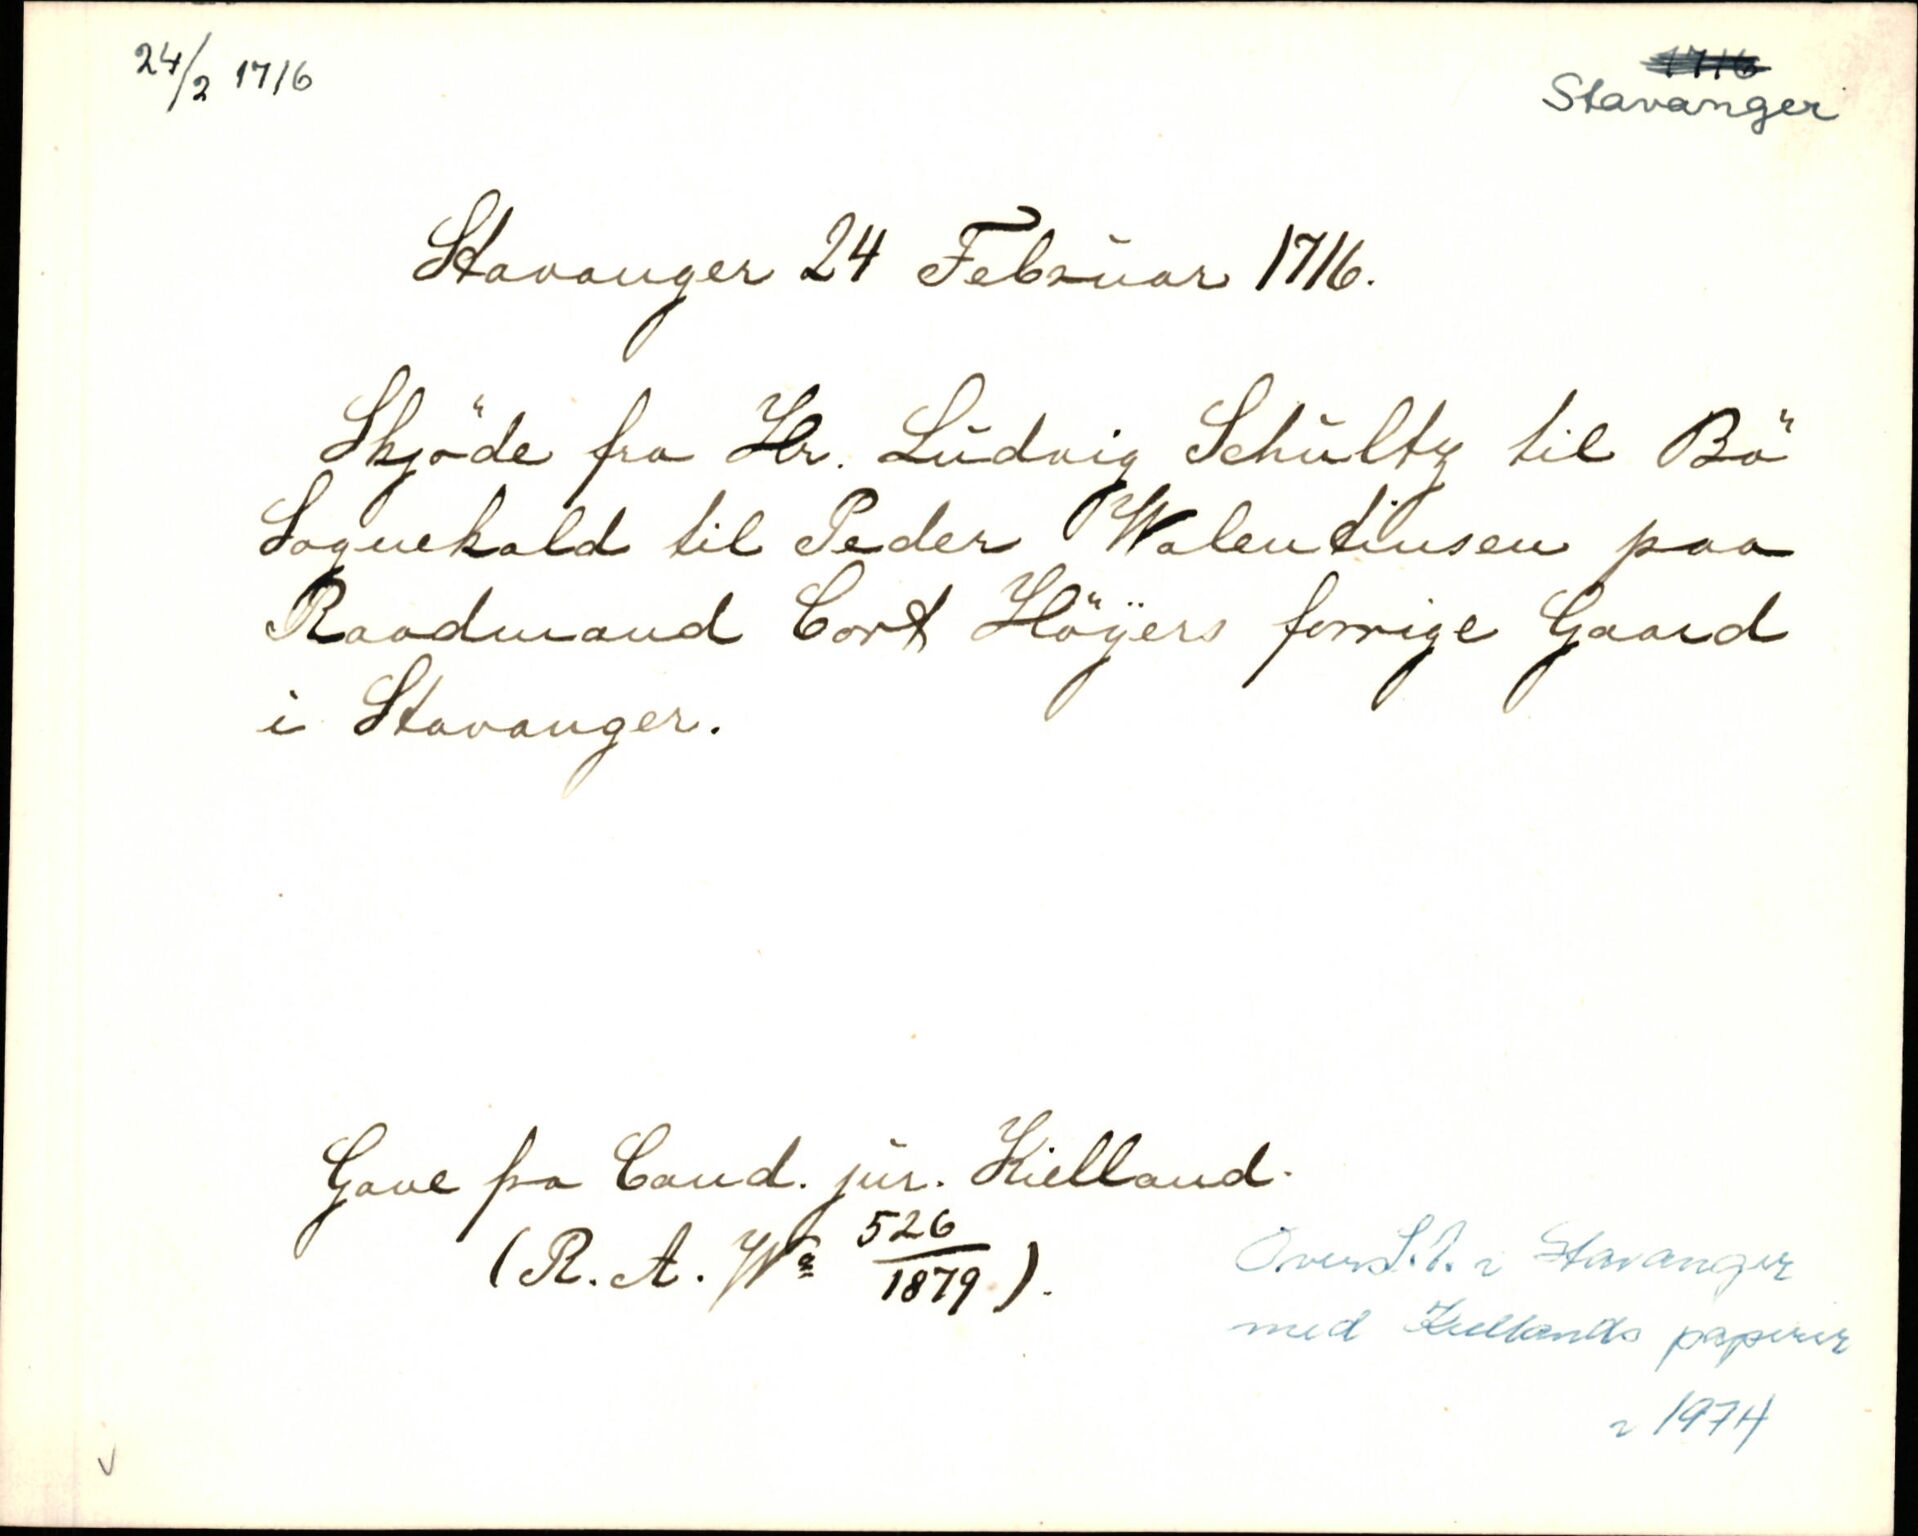 24/2 1716
1716
Stavanger
Stavanger 24 Februar 1716.
Skjöde fra Hr. Ludvig Schultz til Bö
Sognekald til Peder Walentinsen paa
Raadmand Cort Höÿers forrige Gaard
i Stavanger.
Gave fra Cand. jur. Kielland.
(R. A. No 526/1879).
i Stavanger
med Kiellands papirer
i 1974